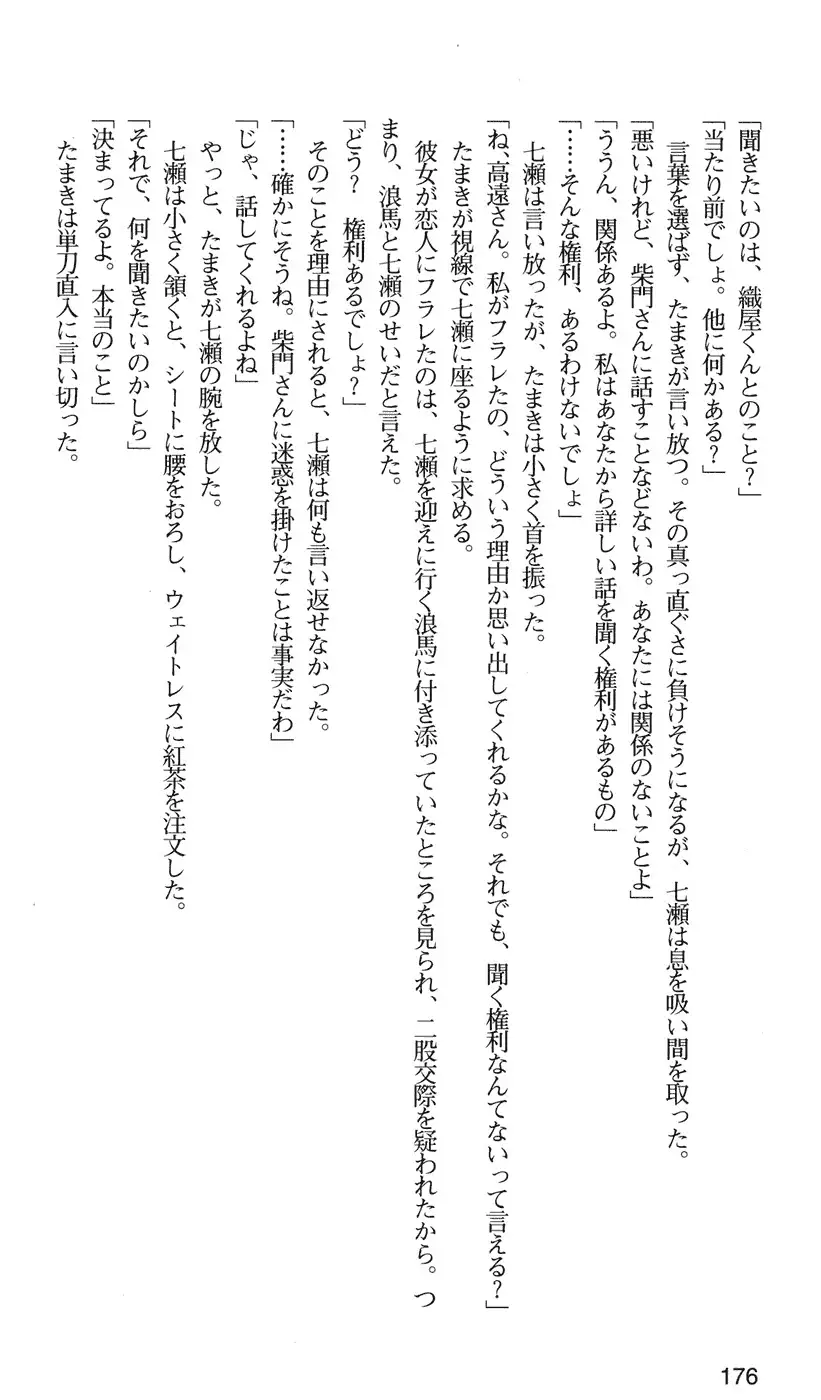 「聞きたいのは、織屋くんとのこと?」
「当たり前でしょ。他に何かある?」
　言葉を選ばず、たまきが言い放つ。その真っ直ぐさに負けそうになるが、七瀬は息を吸い間を取った。
「悪いけれど、柴門さんに話すことなどないわ。あなたには関係のないことよ」
「ううん、関係あるよ。私はあなたから詳しい話を聞く権利があるもの」
「……そんな権利、あるわけないでしょ」
　七瀬は言い放ったが、たまきは小さく首を振った。
「ね、高遠さん。私がフラレたの、どういう理由か思い出してくれるかな。それでも、聞く権利なんてないって言える?」
　たまきが視線で七瀬に座るように求める。
　彼女が恋人にフラレたのは、七瀬を迎えに行く浪馬に付き添っていたところを見られ、二股交際を疑われたから。つ
まり、浪馬と七瀬のせいだと言えた。
「どう?　権利あるでしょ?」
　そのことを理由にされると、七瀬は何も言い返せなかった。
「……確かにそうね。柴門さんに迷惑を掛けたことは事実だわ」
「じゃ、話してくれるよね」
　やっと、たまきが七瀬の腕を放した。
　七瀬は小さく頷くと、シートに腰をおろし、ウェイトレスに紅茶を注文した。
「それで、何を聞きたいのかしら」
「決まってるよ。本当のこと」
　たまきは単刀直入に言い切った。
176